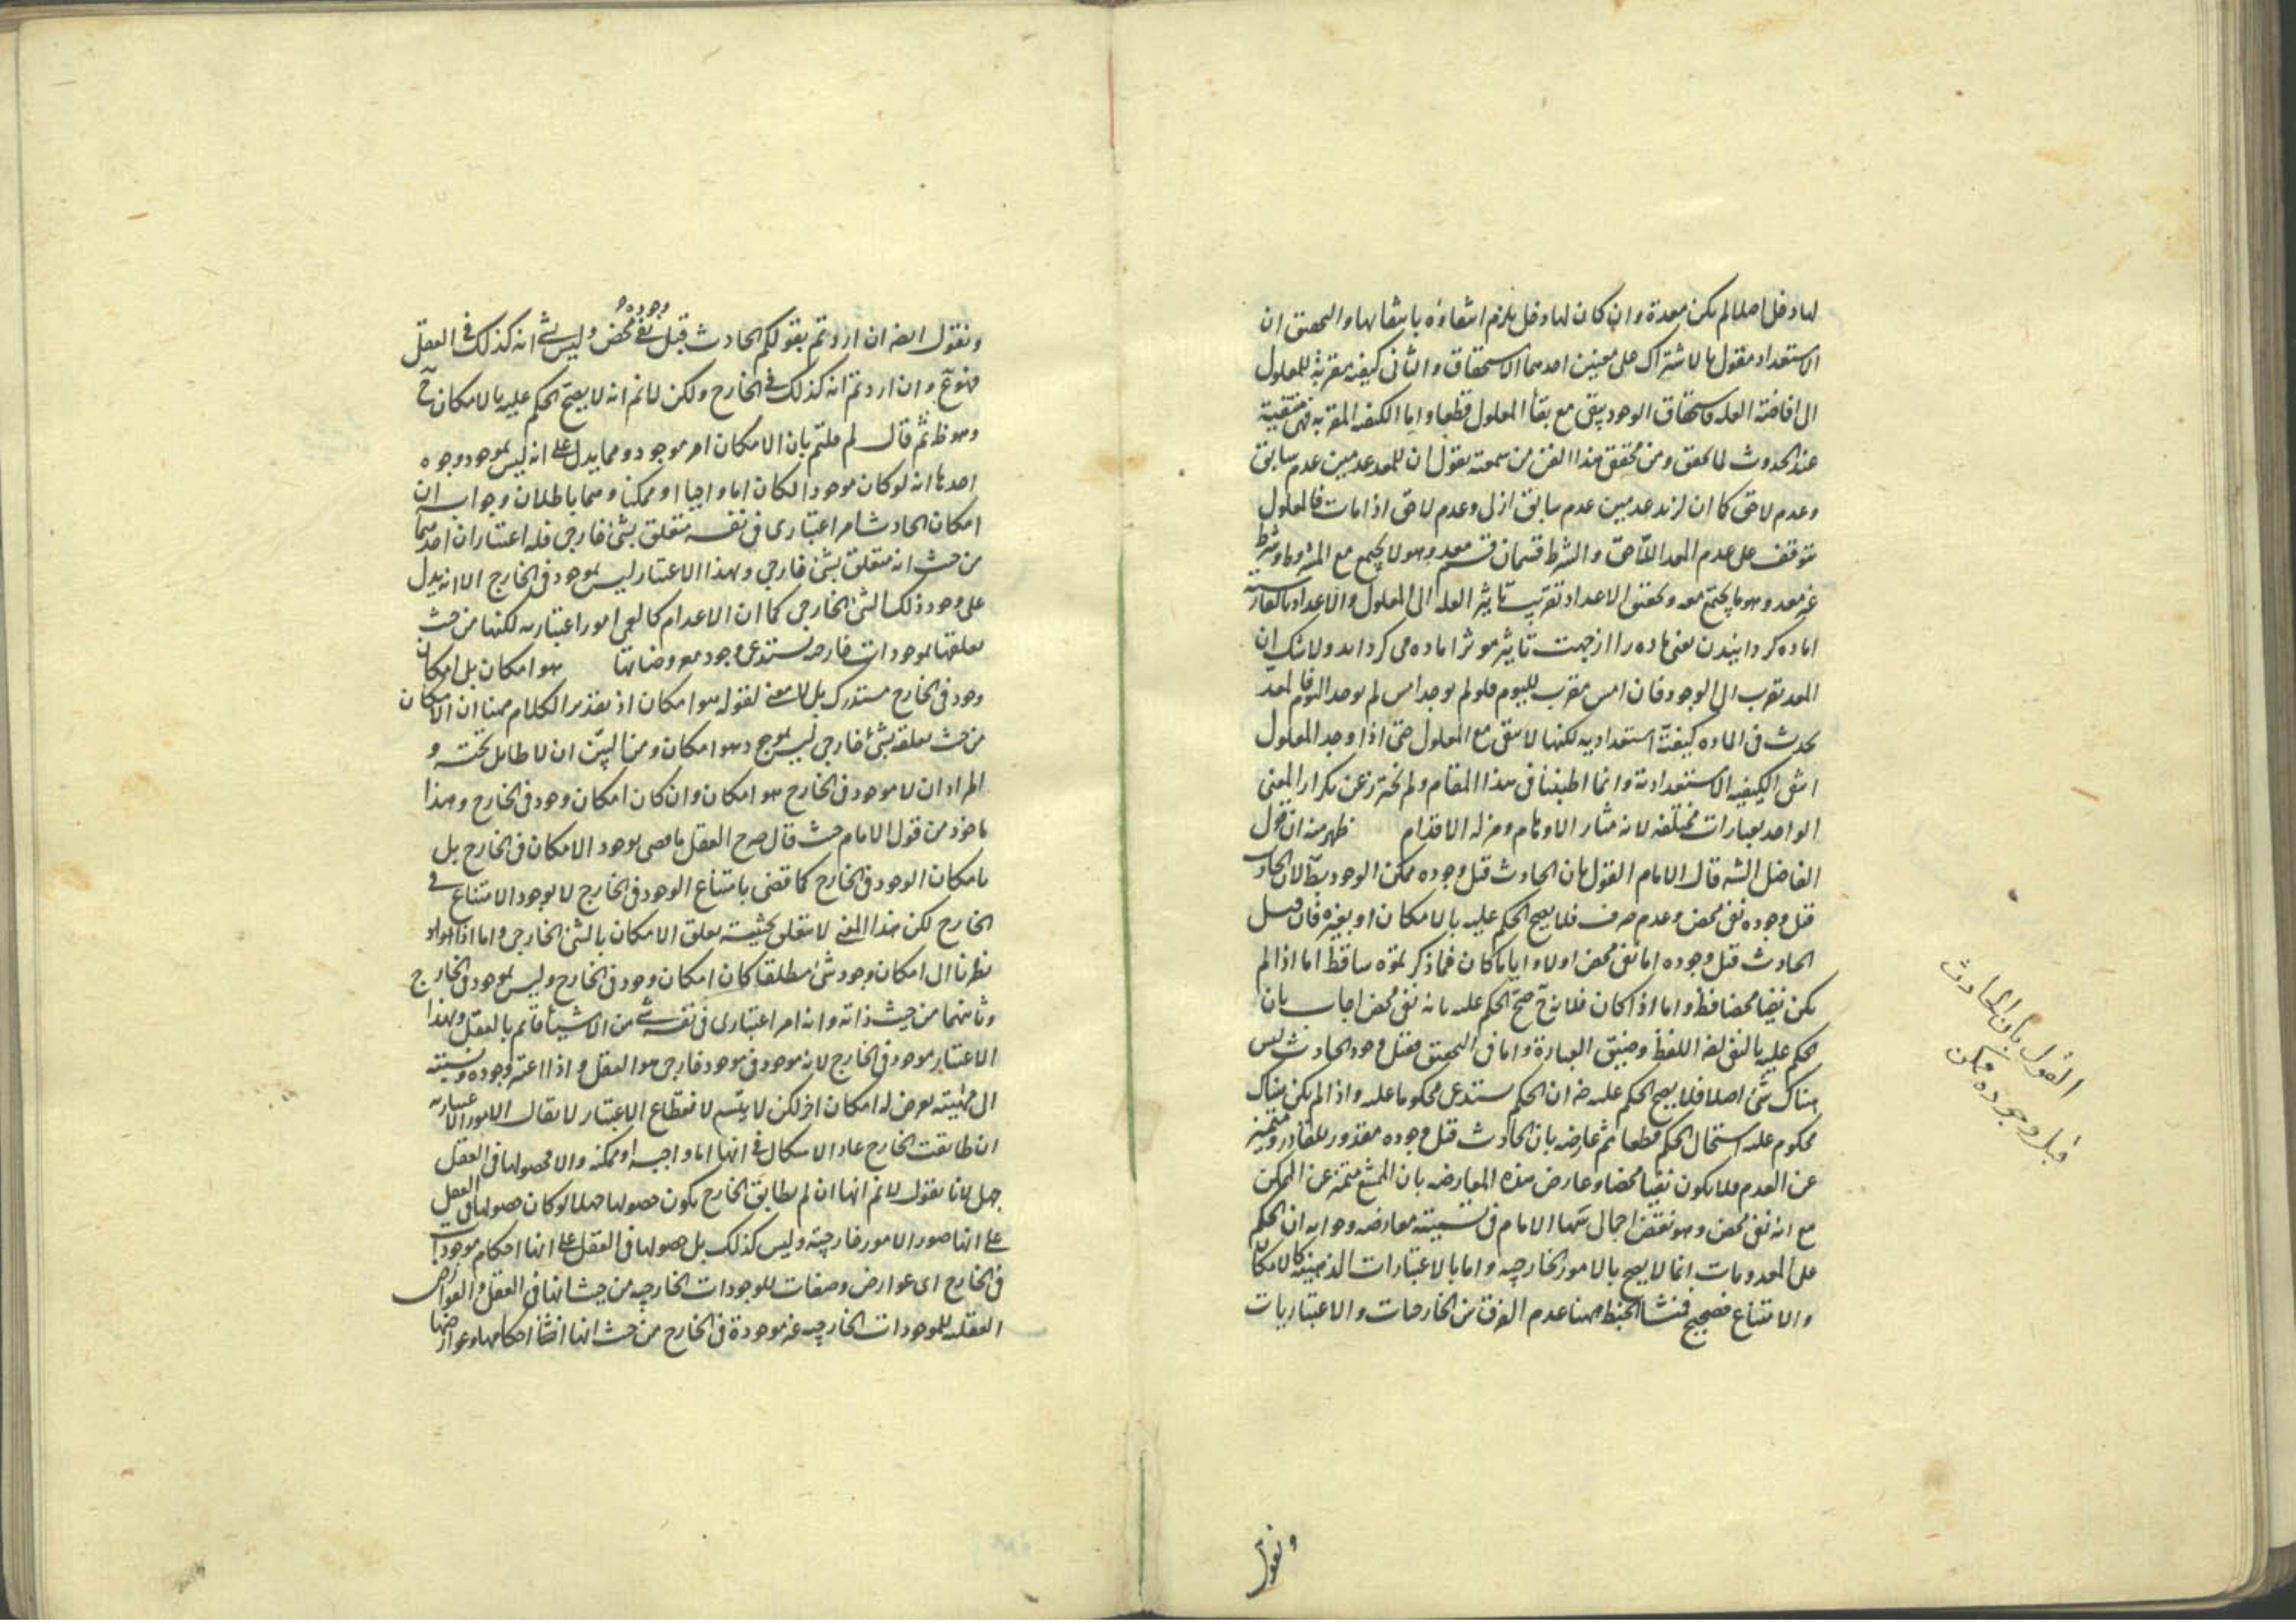 لها دخل اصلا لم يكن معدة وان كان لها دخل يلزم انتفاؤه بانتفائها والتحقيق ان
الاستعداد مقول بالاشتراك على معنيين احدهما الاستحقاق والثانى كيفية مقربة للمعلول
الى افاضة العله فاستحقاق الوجود يبقى مع بقأ المعلول قطعا واما الكيفيه المقربه فهى منتفية
عند الحدوث لا تحقق ومن محقق هذا الفن من سمعته يقول ان للمعد عدمين عدم سابق
وعدم لاحق كما ان لزيد عدمين عدم سابق ازلى وعدم لاحق اذا مات فالمعلول
متوقف على عدم المعد اللاحق والشرط قسمان قسم معد وهو لا يجتمع مع المشروط وشرط
غير معد وهو ما يجتمع معه وتحقق الاعداد تقريب تاثير العله الى المعلول والاعداد بالفارسيه
اماده كردانيدن يعنى ماده را از جهت تاثير موثر اماده مى كرداند ولا شك ان
المعد تقرب الى الوجود فان امس مقرب لليوم فلو لم يوجد امس لم يوجد اليوم فالمعد
يحدث فى الماده كيفية استعداديه لكنها لا تبقى مع المعلول حتى اذا وجد المعلول
انتفى الكيفيه الاستعدادية وانما اطنبنا فى هذا المقام ولم نحترز عن تكرار المعنى
الواحد بعبارات مختلفه لانه مثار الاوهام ومزله الاقدام ظهر منه ان قول
الفاضل الشه قال الامام القول بان الحادث قبل وجوده ممكن الوجود بط لان الحادث
قبل وجوده نفى محض وعدم صرف فلا يصح الحكم عليه بالامكان او بغيره فان قيل
الحادث قبل وجوده اما نفى محض اولا واياما كان فما ذكرتموه ساقط اما اذا لم
يكن نفيا محضا فظ واما اذا كان فلانه ح صح الحكم عليه بانه نفى محض اجاب بان
الحكم عليه بالنفى لغة اللفظ وضيق العبارة واما فى التحقيق فقبل وجود الحادث ليس
هناك شئ اصلا فلا يصح الحكم عليه ضه ان الحكم يستدعى محكوما عليه واذا لم يكن هناك
محكوم عليه استحال الحكم قطعا ثم عارضه بان الحادث قبل وجوده مقدور للقادر ومتميز
عن العدم فلا يكون نفيا محضا وعارض هذه المعارضه بان الممتنع متميز عن الممكن
مع انه نفى محض وهو نقض اجمالى سمها الامام فى تسميته معارضه وجوابه ان الحكم
على المعدومات انما لا يصح بالامور الخارجيه واما بالاعتبارات الذهنية كالامكان
والامتناع فصحيح فمنشأ الخبط ههنا عدم الفرق بين الخارجيات والاعتباريات
القول بان الحادث
قبل وجوده ممكن
ونقول
وجوده
ونقول ايضه ان اردتم بقولكم الحادث قبل نفى محض وليس بشئ انه كذلك فى العقل
فهو مع وان اردتم انه كذلك فى الخارج ولكن لانم انه لا يصح الحكم عليه بالامكان ح
وهو ظ ثم قال لم قلتم بان الامكان امر موجود ومما يدل على انه ليس بموجود وجوه
احدها انه لو كان موجودا لكان اما واجبا او ممكنا وهما باطلان وجوابه ان
امكان الحادث امر اعتبارى فى نفسه متعلق بشئ خارجى فله اعتباران احدهما
من حيث انه متعلق بشئ خارجى وبهذا الاعتبار ليس بموجود فى الخارج الا انه يدل
على وجود ذلك الشئ الخارجى كما ان الاعدام كالعمى امور اعتباريه لكنها من حيث
تعلقها بموجودات خارجيه تستدعى وجود معروضاتها هو امكان بل امكان
وجود فى الخارج مستدرك بل لا معنى لقوله هو امكان اذ تقدير الكلام ههنا ان الامكان
من حيث تعلقه بشئ خارجى ليس بموجود هو امكان وهنا ليبين ان لا طايل تحته و
المراد ان لا موجود فى الخارج هو امكان وان كان امكان وجود فى الخارج وهذا
ماخوذ من قول الامام حيث قال صرح العقل ما قضى بوجود الامكان فى الخارج بل
بامكان الوجود فى الخارج كما قضى بامتناع الوجود فى الخارج لا بوجود الامتناع فى
الخارج لكن هذا المعنى لا يتعلق بحيثية تعلق الامكان بالشئ الخارجى واما اذا
نظرنا الى امكان وجود شئ مطلقا كان امكان وجود فى الخارج وليس بموجود فى الخارج
وثانيهما من حيث ذاته وانه امر اعتبارى فى نفسه شئ من الاشيا قائم بالعقل وبهذا
الاعتبار موجود فى الخارج لانه موجود فى موجود خارجى هو العقل واذا اعتبر وجوده ونسبته
الى مهيته يعرض له امكان اخر لكن لا يتسم لانقطاع الاعتبار لا يقال الامور الاعتباريه
ان طابقت الخارج عاد الاشكال فى انها اما واجبه او ممكنه والا فحصولها فى العقل
جهل لانا نقول لانم انها ان لم يطابق الخارج يكون حصولها جهلا لو كان حصولها فى العقل
على انها صور الامور خارجيه وليس كذلك بل حصولها فى العقل على انها احكام موجودات
فى الخارج اى عوارض وصفات للموجودات الخارجيه من حيث انها فى العقل والعوارض
العقليه للموجودات الخارجيه غير موجودة فى الخارج من حيث انها ايضا احكامها وعوارضها